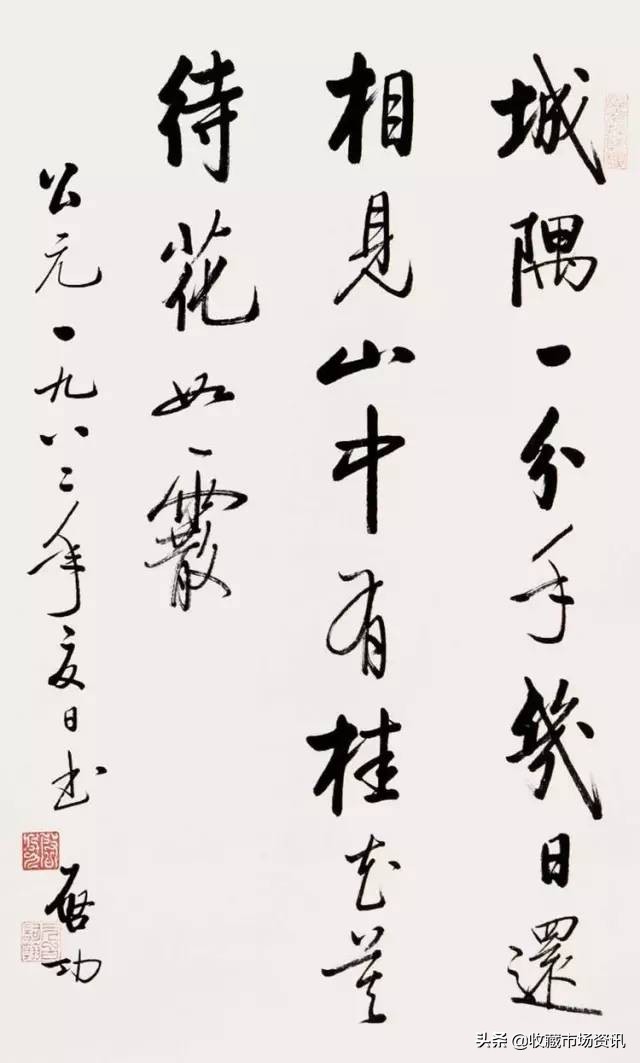 城隅一分手幾日還
相見山中有桂花莫
待花如霰
公元一九八二年夏日书
启功
头条 @收藏市场资讯